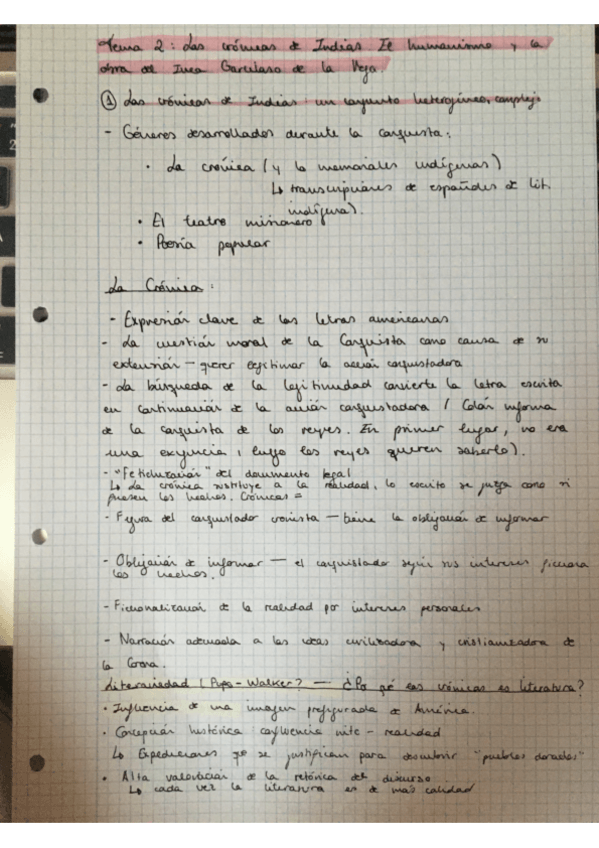 Tema 2: Las crónicas de Indias. El humanismo y la
obra del Inca Garcilaso de la Vega.
① Las crónicas de Indias: un conjunto heterogéneo, complejo
- Géneros desarrollados durante la conquista:
· La crónica (y lo memoriales indígenas)
↳ transcripciones de españoles de lit.
indígena).
· El teatro misionero
· Poesía popular
La Crónica:
- Expresión clave de las letras americanas
- La cuestión moral de la Conquista como causa de su
extensión — querer legitimar la acción conquistadora
- La búsqueda de la legitimidad convierte la letra escrita
en continuación de la acción conquistadora (Colón informa
de la conquista de los reyes. En primer lugar, no era
una exigencia, luego los reyes quieren saberlo).
- "Fetichización" del documento legal
↳ La crónica sustituye a la realidad, lo escrito se juzga como si
fuesen los hechos. Crónicas =
- Figura del conquistador cronista — tiene la obligación de informar
- Obligación de informar — el conquistador según sus intereses ficciona
los hechos.
- Ficcionalización de la realidad por intereses personales
- Narración adecuada a las ideas civilizadora y cristianizadora de
la Corona.
Literariedad (Pupo-Walker? — ¿Po qé las crónicas es literatura?
· Influencia de una imagen prefigurada de América.
· Concepción histórica: confluencia mito - realidad
↳ Expediciones qe se justifican para descubrir "pueblos dorados"
· Alta valoración de la retórica del discurso
↳ cada vez la literatura es de más calidad